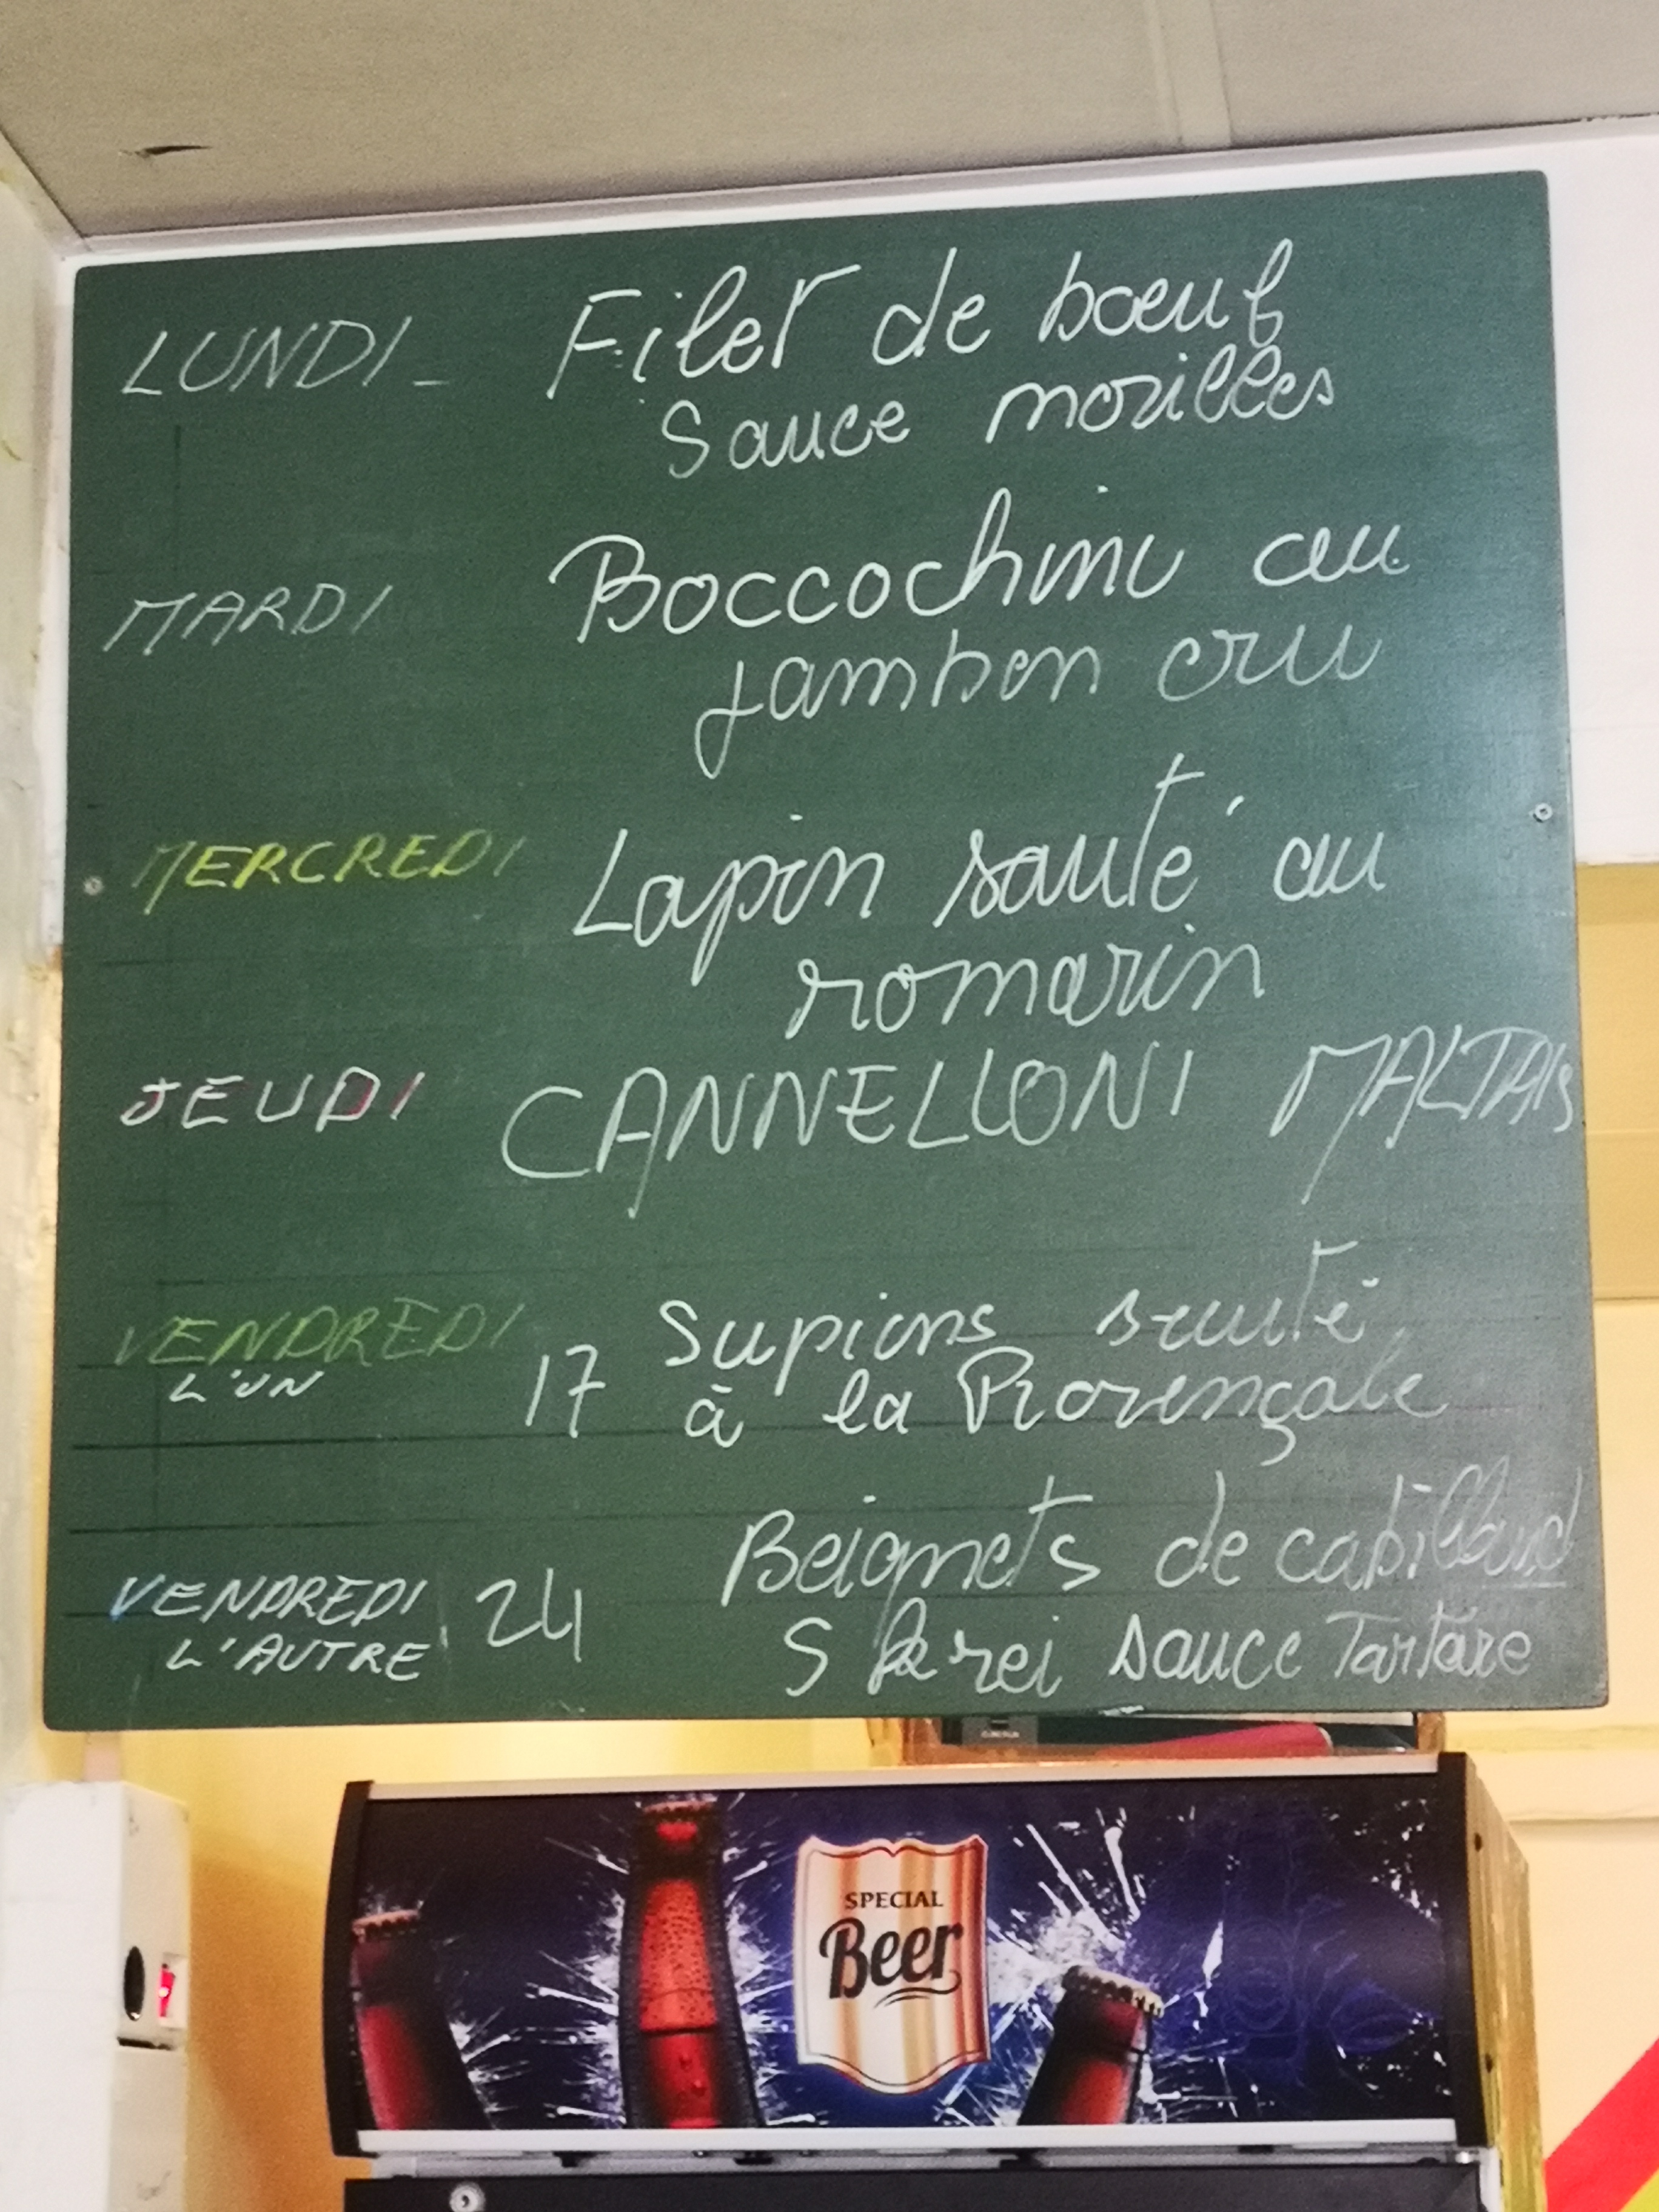 LUNDI - Filet de bœuf
Sauce morilles
MARDI Boccochini au
jambon cru
MERCREDI Lapin sauté au
romarin
JEUDI CANNELLONI MALTAIS
VENDREDI Supions sauté
L'UN 17 à la Provençale
Beignets de cabillaud
VENDREDI 24
L'AUTRE Skrei sauce Tartare
SPECIAL
Beer